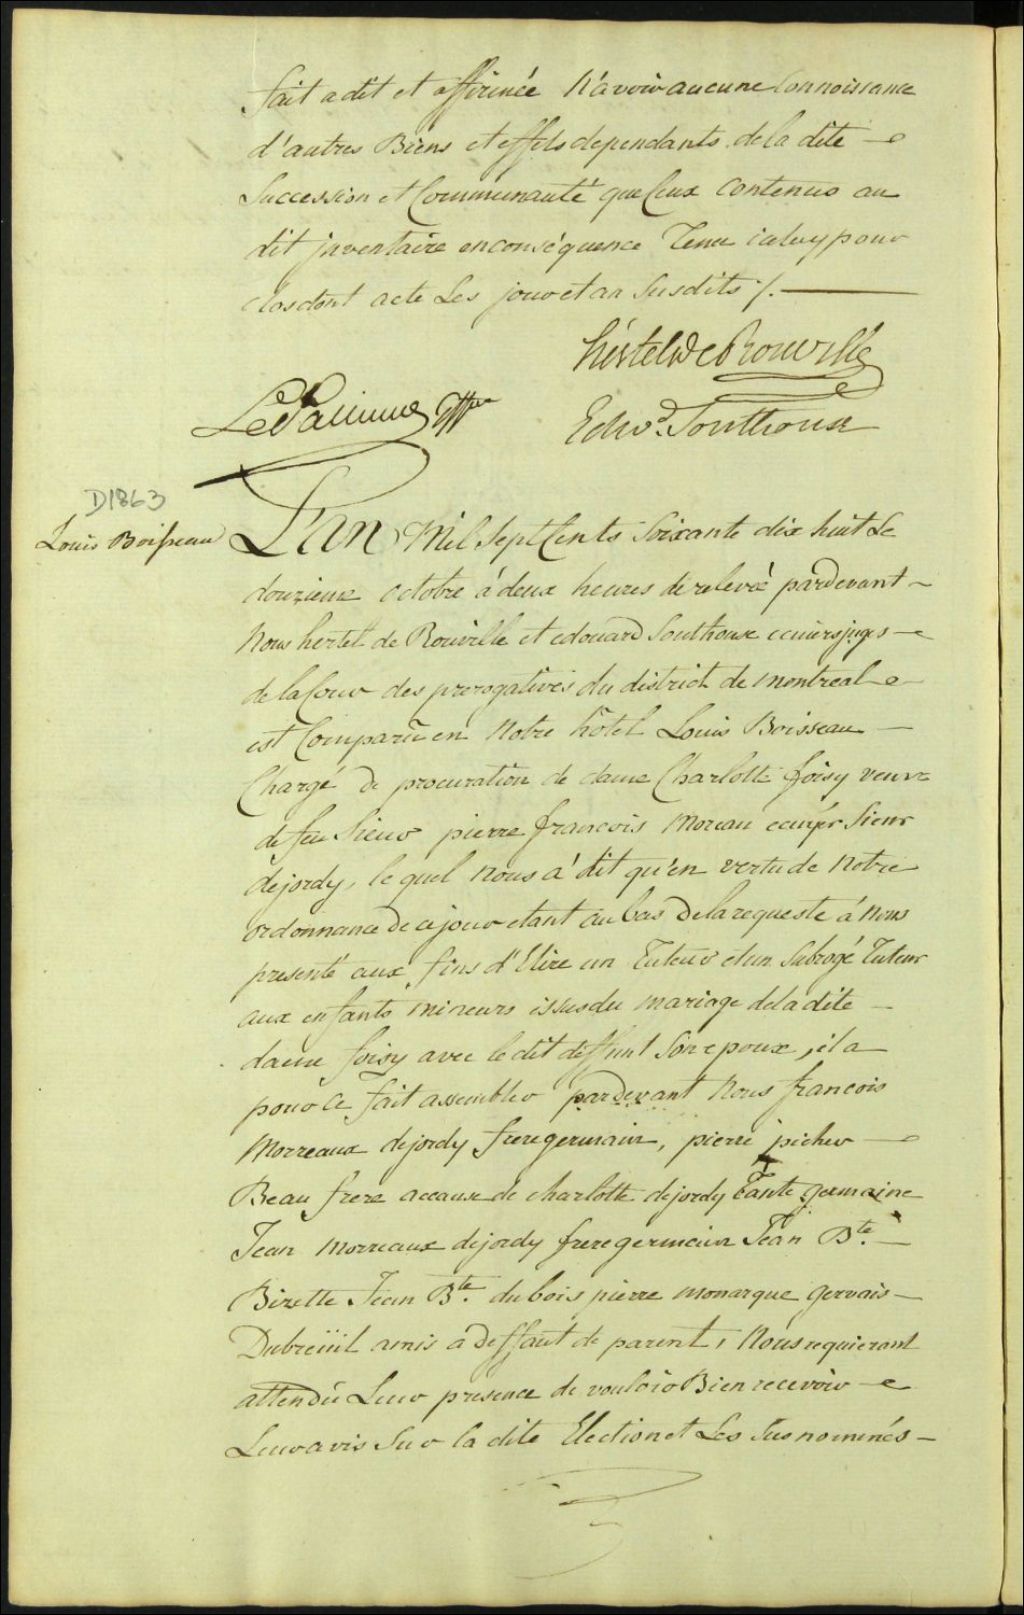 fait a dit et affirmée N'avoir aucune Connoissance
d'autres Biens et effets dependants de la dite
Succession et Communauté que Ceux contenus au
dit inventaire en conséquence Tenu iceluy pour
clos dont acte Les jour et an Susdits /.
hertel De Rouville
LePallieur Gffier
Edwd. Southouse
D1863
Louis Boisseau
L'an Mil Sept Cents Soixante dix huit Le
douzieme octobre à deux heures de relevée pardevant
Nous hertel de Rouville et edouard Southouse ecuiers juges
de la Cour des prerogatives du district de montreal
est Comparu en Notre hôtel Louis Boisseau
Chargé de procuration de dame Charlotte foisy veuve
de feu Sieur pierre francois Moreau ecuyer Sieur
dejordy, le quel Nous a dit qu'en vertu de Notre
ordonnance de ce jour etant au bas de la requeste à Nous
presenté aux fins d'Elire un Tuteur et un Subrogé Tuteur
aux enfants mineurs issus du mariage de la dite
dame foisy avec le dit deffunt Son epoux, il a
pour ce fait assembler pardevant Nous francois
Morreaux dejordy frere germain, pierre picher
Beau frere acause de charlotte dejordy Tante germaine
Jean Morreaux dejordy frere germain Jean Bte.
Birette Jean Bte. dubois pierre monarque gervais
Dubreüil amis a deffaut de parent, Nous requierant
attendu Leur presence de vouloir Bien recevoir
Leur avis Sur la dite Election et Les Susnommés